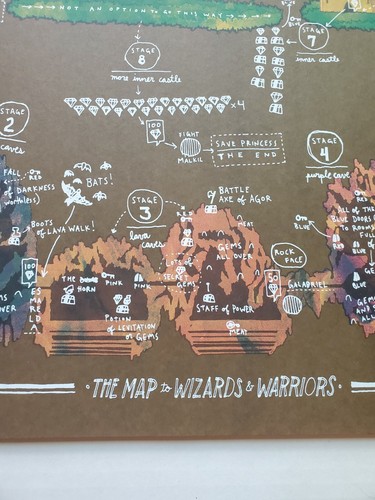 NOT AN OPTION to GO THIS WAY
STAGE
8
more inner castle
STAGE
7
inner castle
RED
x4
100
FIGHT
MALKIL
SAVE PRINCESS
THE END
STAGE
2
caves
FALL
RED
of DARKNESS
worthless)
BATS!
BOOTS
of LAVA WALK!
STAGE
3
lava
caves
BATTLE
AXE of AGOR
RED
GEMS
ALL OVER
LOTS of
SECRET
GEMS
STAFF of POWER
MEAT
THE
HORN
PINK
PINK
POTION
of LEVITATION
or GEMS
100
GEMS
OVER
ROCK
FACE
50
GALADRIEL
STAGE
4
purple cave
BLUE
RED
ALL OF THE
BLUE DOORS
TO ROOMS
FULL
BLUE
GEMS
AND
ALL
THE MAP to WIZARDS & WARRIORS